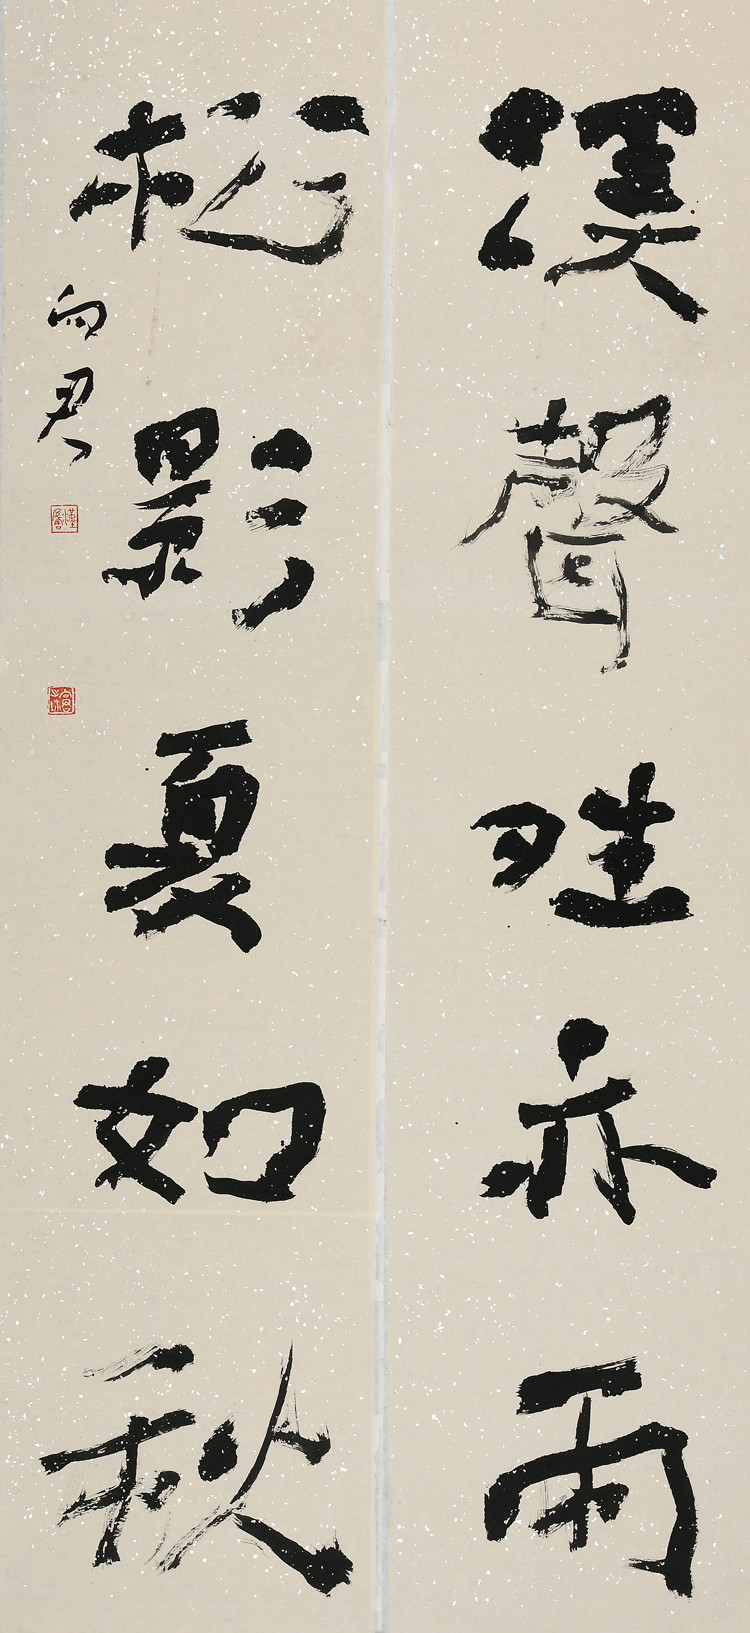 溪聲夝亦雨
松影夏如秋
向君